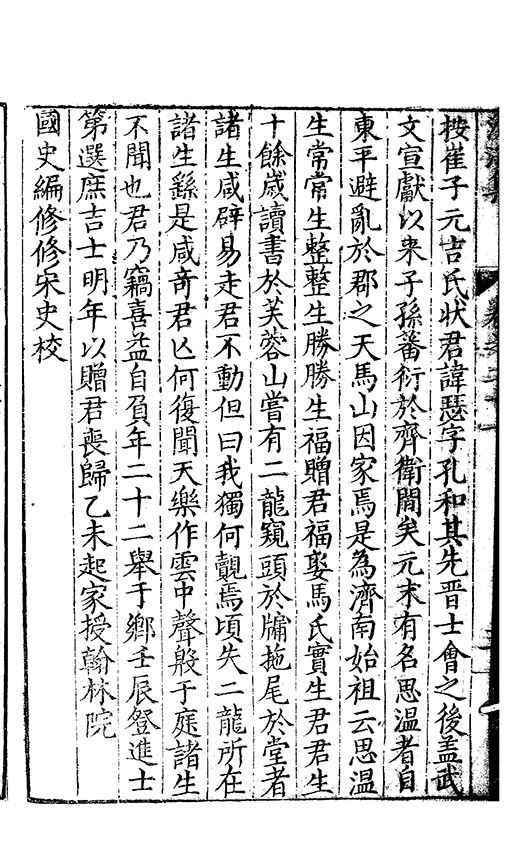 按崔子元吉氏状君諱瑟字孔和其先晋士會之後盖武
文宣獻以来子孫蕃衍於齊衛間矣元末有名思温者自
東平避亂於郡之天馬山因家焉是為濟南始祖云思温
生常常生整整生勝勝生福贈君福娶馬氏實生君君生
十餘歲讀書於芙蓉山嘗有二龍窺頭於牖拖尾於堂者
諸生咸辟易走君不動但曰我獨何覿焉頃失二龍所在
諸生繇是咸竒君㠯何復聞天樂作雲中聲殷于庭諸生
不聞也君乃竊喜益自負年二十二舉于鄉壬辰登進士
第選庶吉士明年以贈君喪歸乙未起家授翰林院
國史編修修宋史校